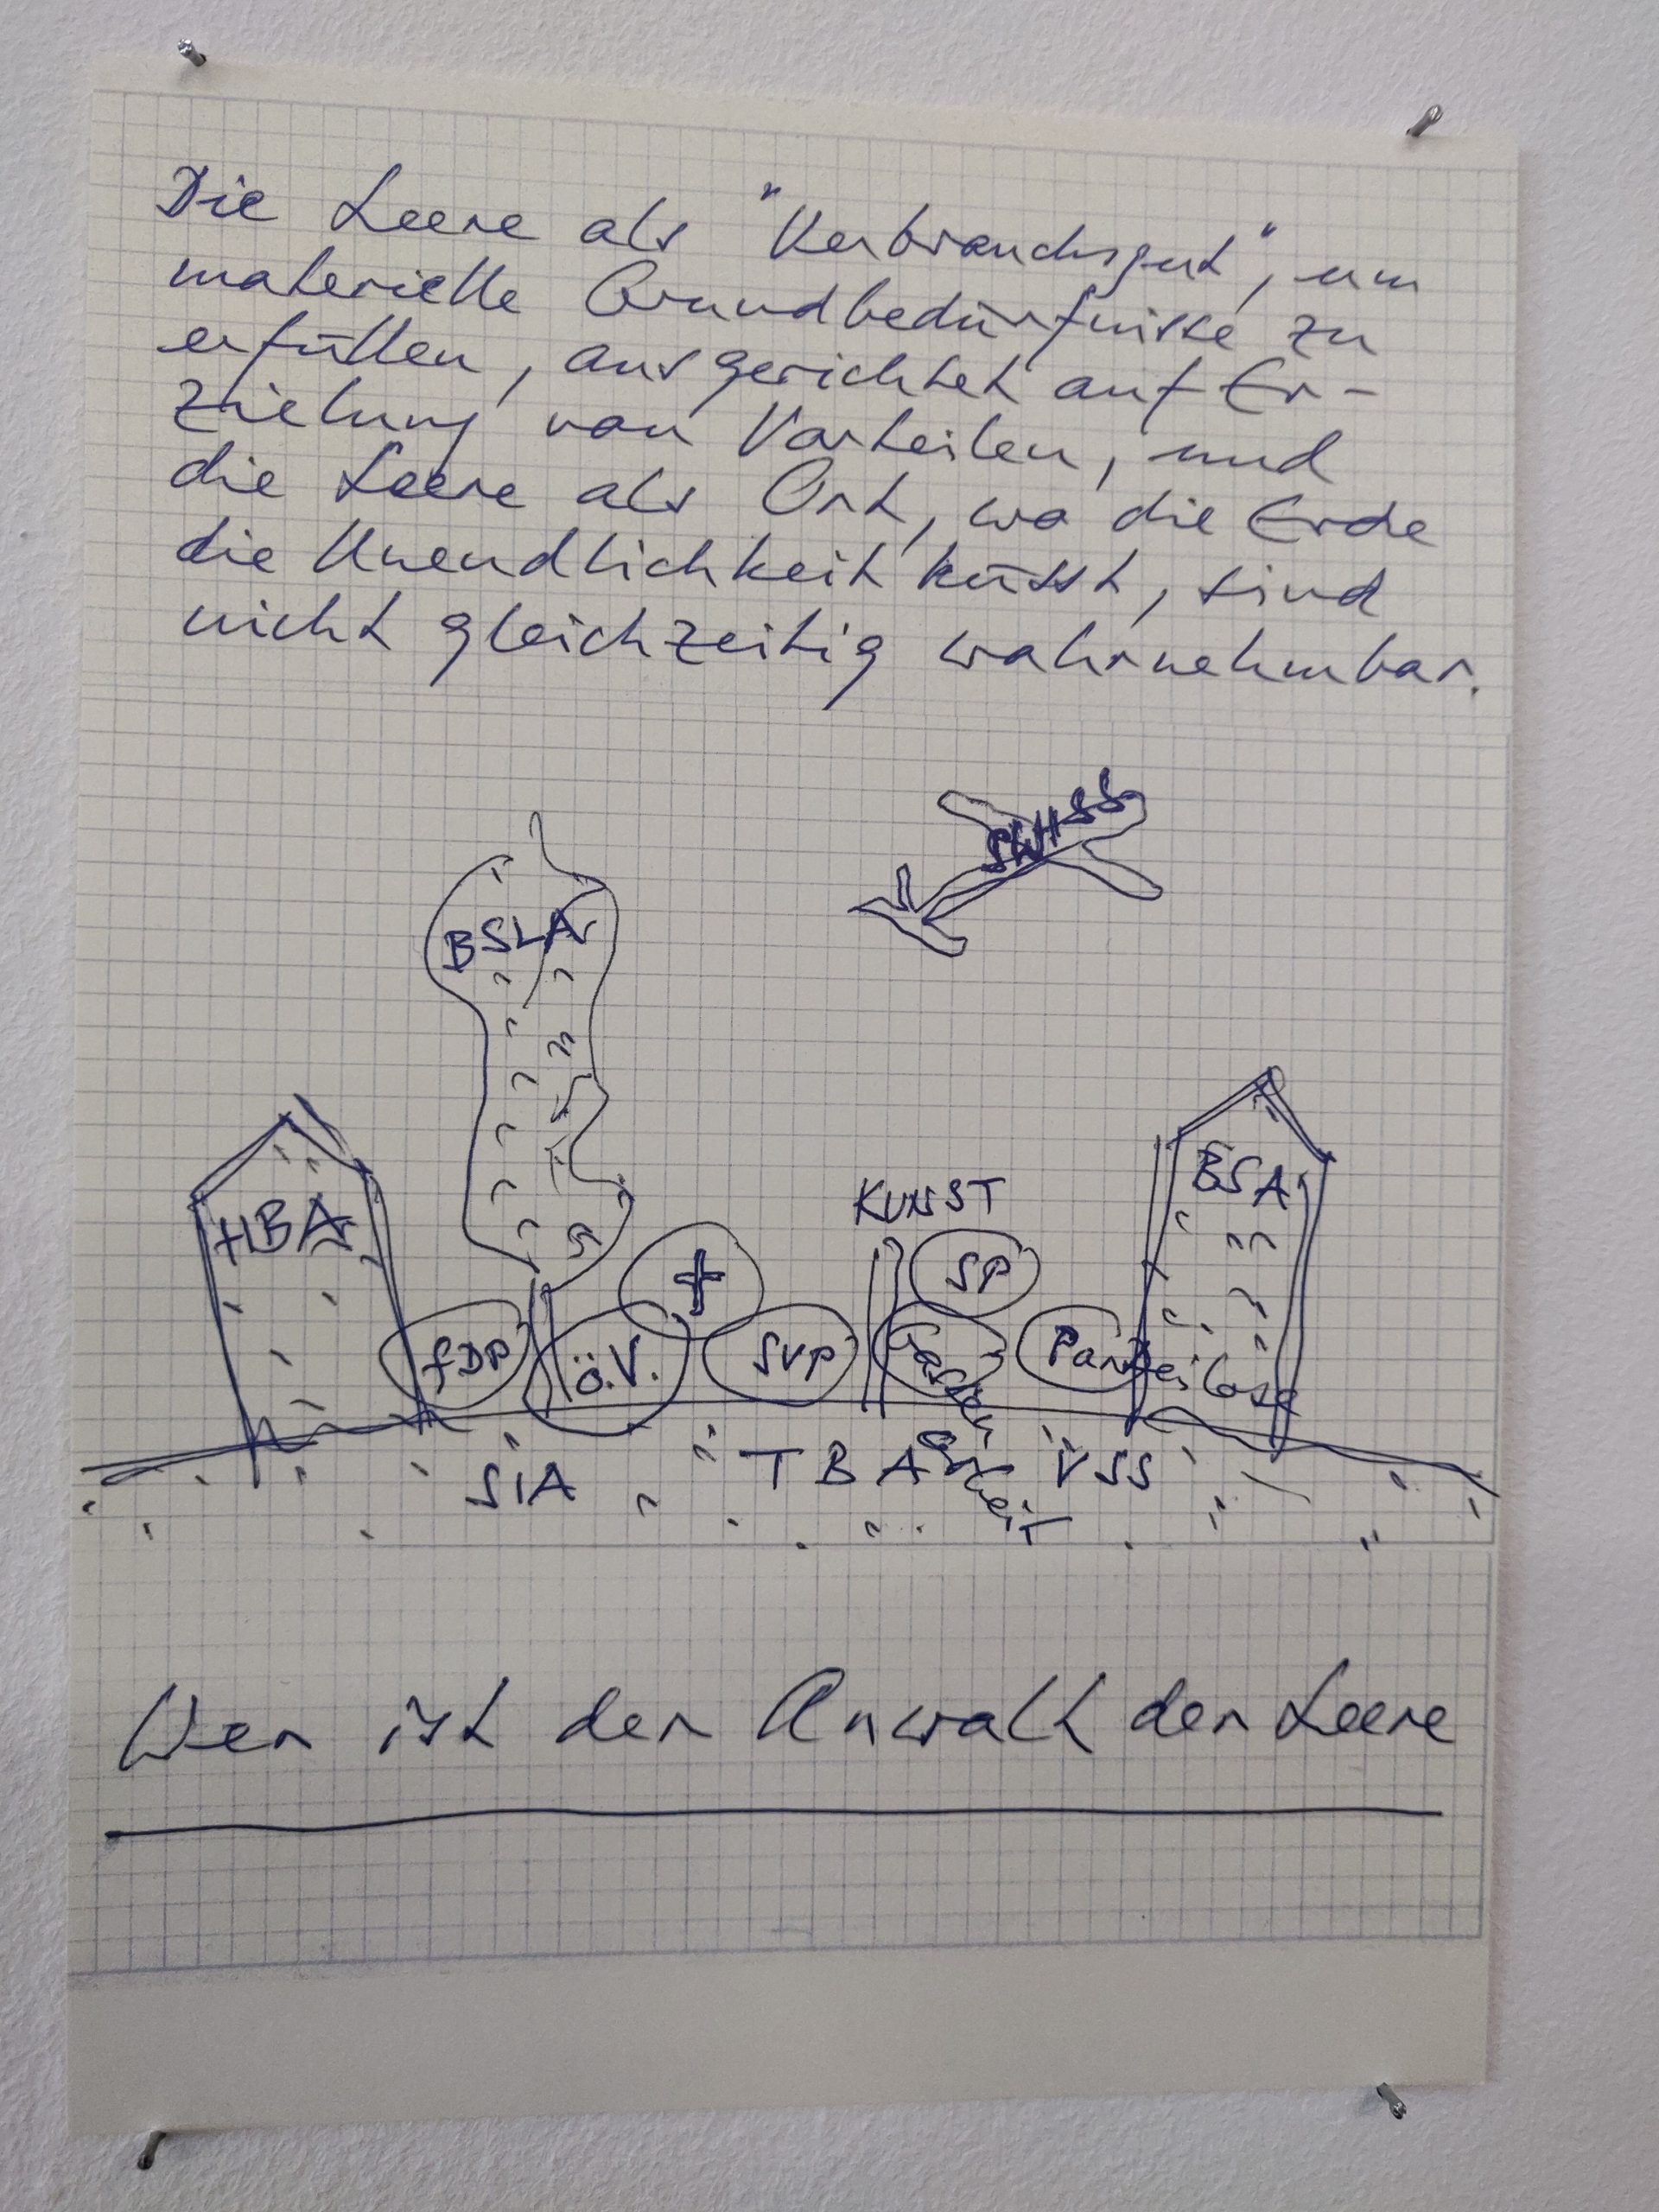 Die Leere als "Verbrauchsgut", um
materielle Grundbedürfnisse zu
erfüllen, ausgerichtet auf Er-
zielung von Vorteilen, und
die Leere als Ort, wo die Erde
die Unendlichkeit küsst, sind
nicht gleichzeitig wahrnehmbar.
SWISS
BSLA
HBA
KUNST
BSA
+
SP
FDP
ö.V.
SVP
Parteilose
SIA
TBA
VSS
Wer ist der Anwalt der Leere